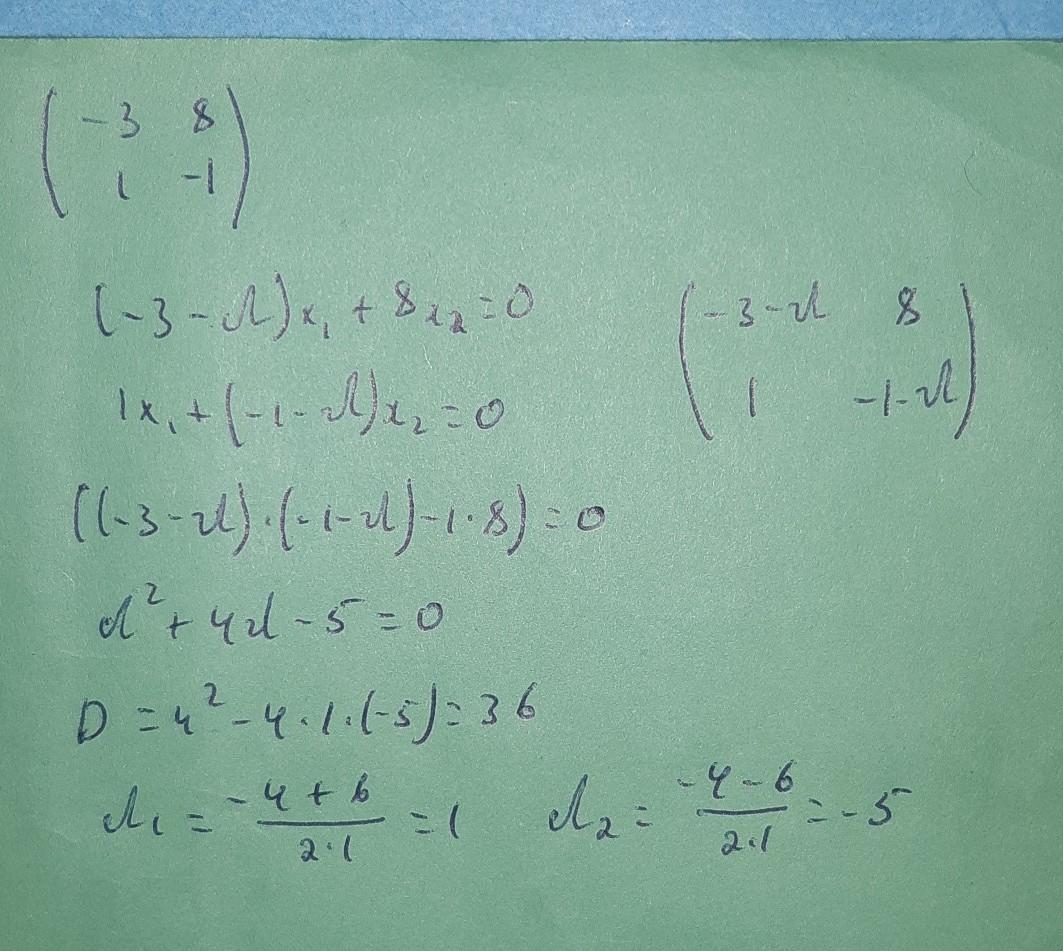 ( -3 8
1 -1 )
(-3-λ)x₁ + 8x₂ = 0
( -3-λ 8
1 -1-λ )
1x₁ + (-1-λ)x₂ = 0
((-3-λ)·(-1-λ)-1·8) = 0
λ² + 4λ - 5 = 0
D = 4² - 4·1·(-5) = 36
λ₁ = (-4+6)/(2·1) = 1 λ₂ = (-4-6)/(2·1) = -5